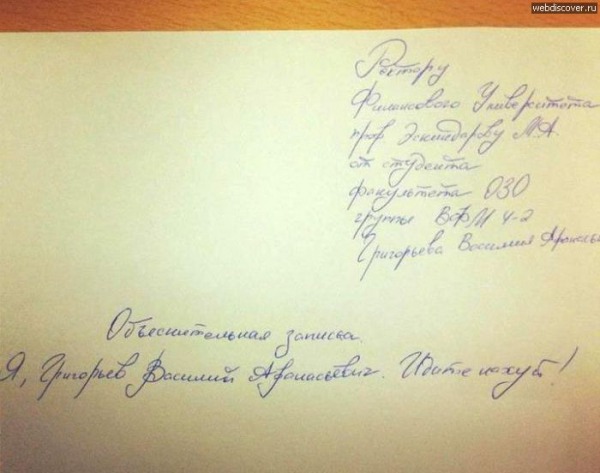 webdiscover.ru
Ректору
Финансового Университета
проф. Эскиндарову М.А.
от студента
факультета ОЗО
группы ВФМ 4-2
Григорьева Василия Афанасье
Объеснительная записка.
Я, Григорьев Василий Афанасьевич. Идите нахуй!